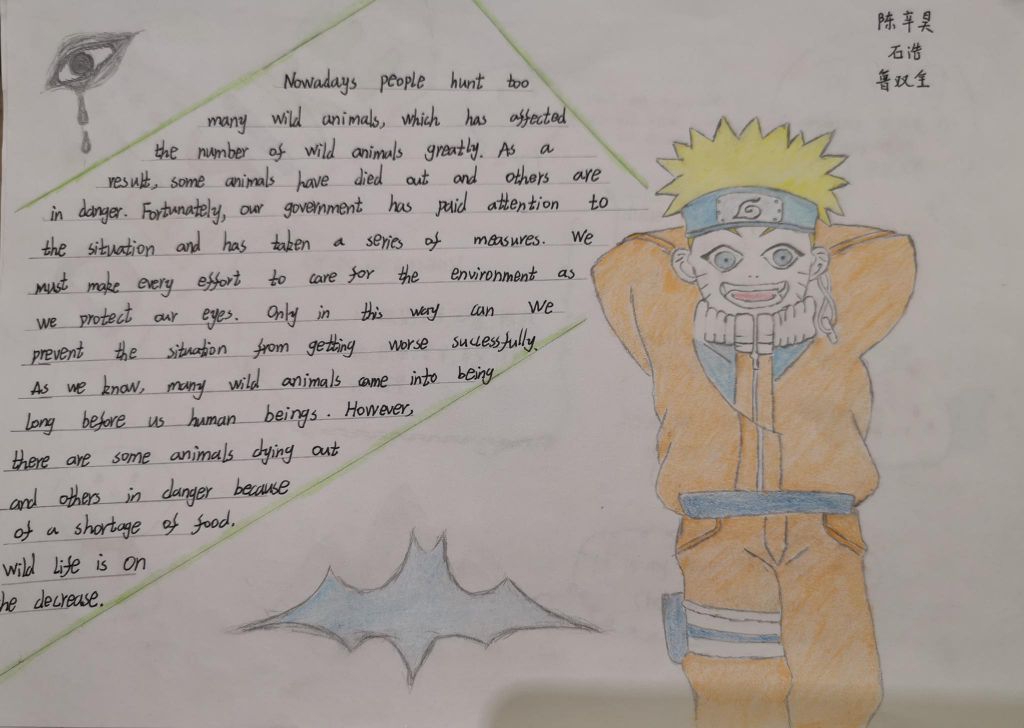 陈辛昊
石浩
鲁双全
Nowadays people hunt too
many wild animals, which has affected
the number of wild animals greatly. As a
result, some animals have died out and others are
in danger. Fortunately, our government has paid attention to
the situation and has taken a series of measures. We
must make every effort to care for the environment as
we protect our eyes. Only in this way can we
prevent the situation from getting worse successfully.
As we know, many wild animals came into being
long before us human beings. However,
there are some animals dying out
and others in danger because
of a shortage of food.
wild life is on
he decrease.